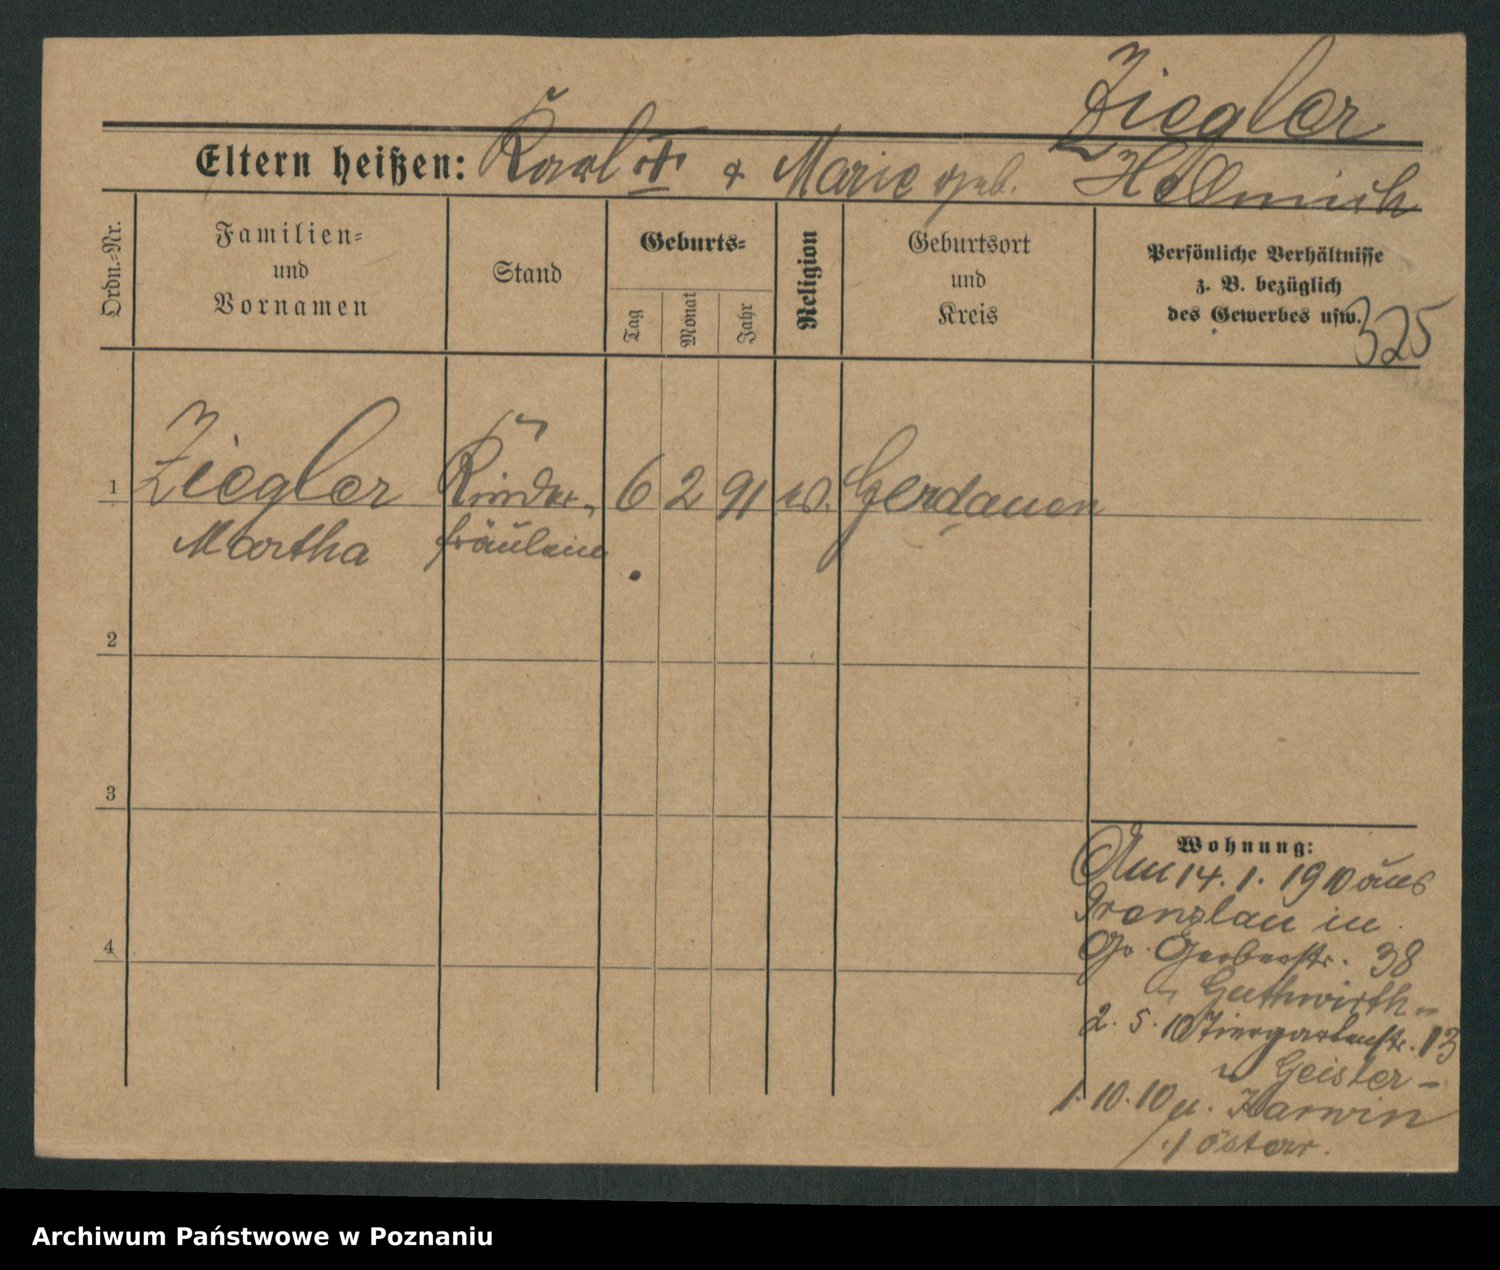 Ziegler
Eltern heißen: Karl † & Marie geb. Hellmich
Ordn.-Nr.
Familien=
und
Vornamen
Stand
Geburts=
Tag
Monat
Jahr
Religion
Geburtsort
und
Kreis
Persönliche Verhältnisse
z. B. bezüglich
des Gewerbes usw.
325
1 Ziegler Kinder- 6 2 91 ev. Gerdauen
Martha fräulein
2
3
4
Wohnung:
Am 14. 1. 1910 aus
Prenzlau in
Gr. Gerberstr. 38
Guthwirth -
2. 5. 10 Tiergartenstr. 13
Geisler -
1. 10. 10 n. Karwin
österr.
Archiwum Państwowe w Poznaniu